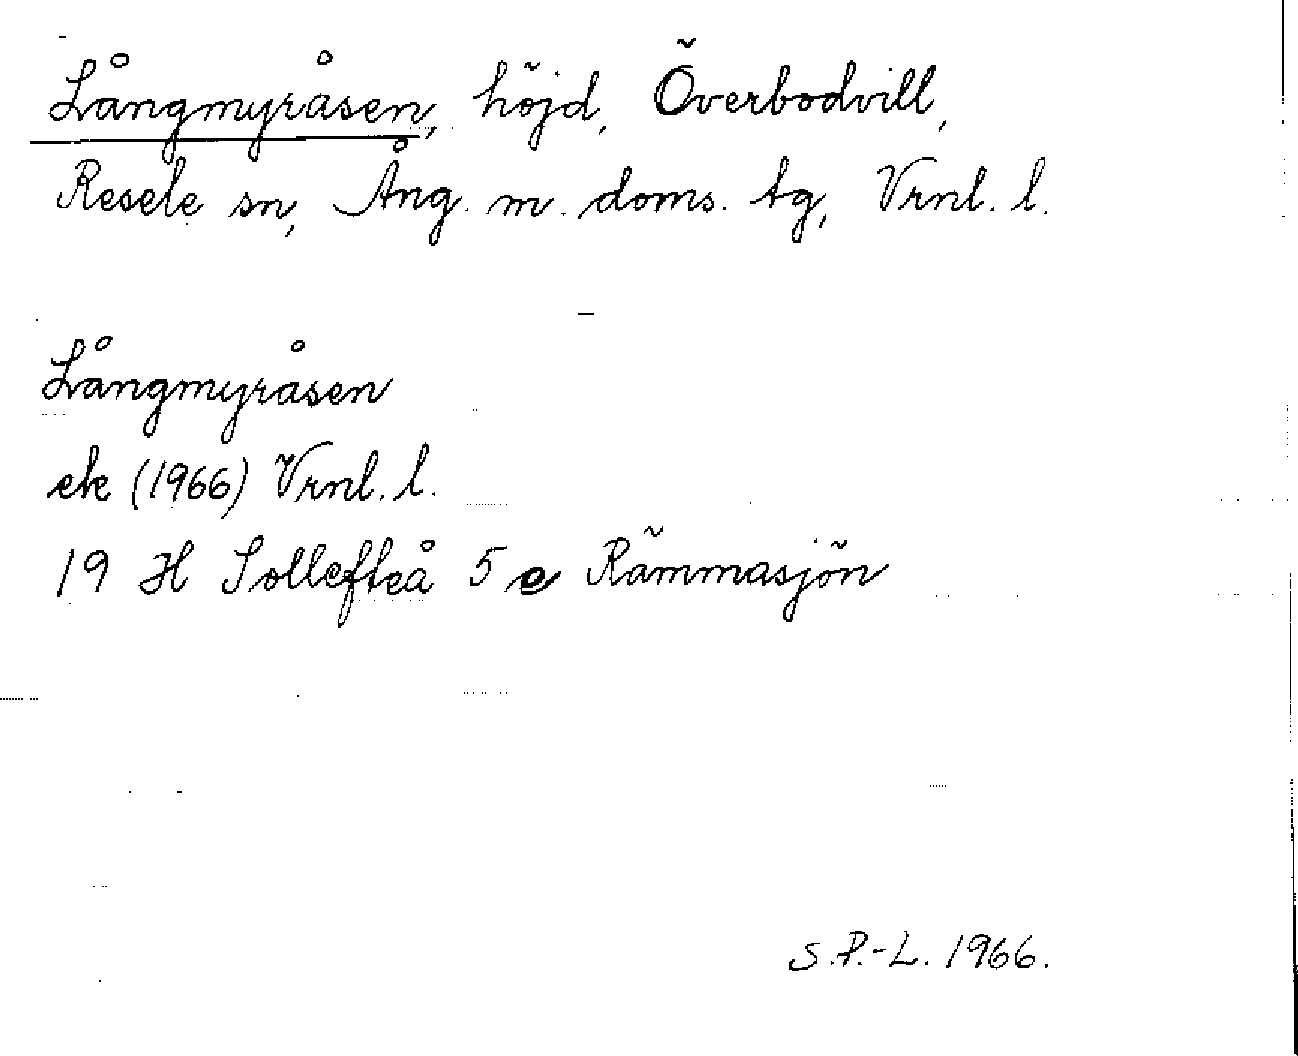 Långmyråsen, höjd, Överbodvill,
Resele sn, Ång. m. doms. tg, Vrnl. l.
Långmyråsen
ek (1966) Vrnl. l.
19 H Sollefteå 5 e Rämmasjön
S.P.-L. 1966.